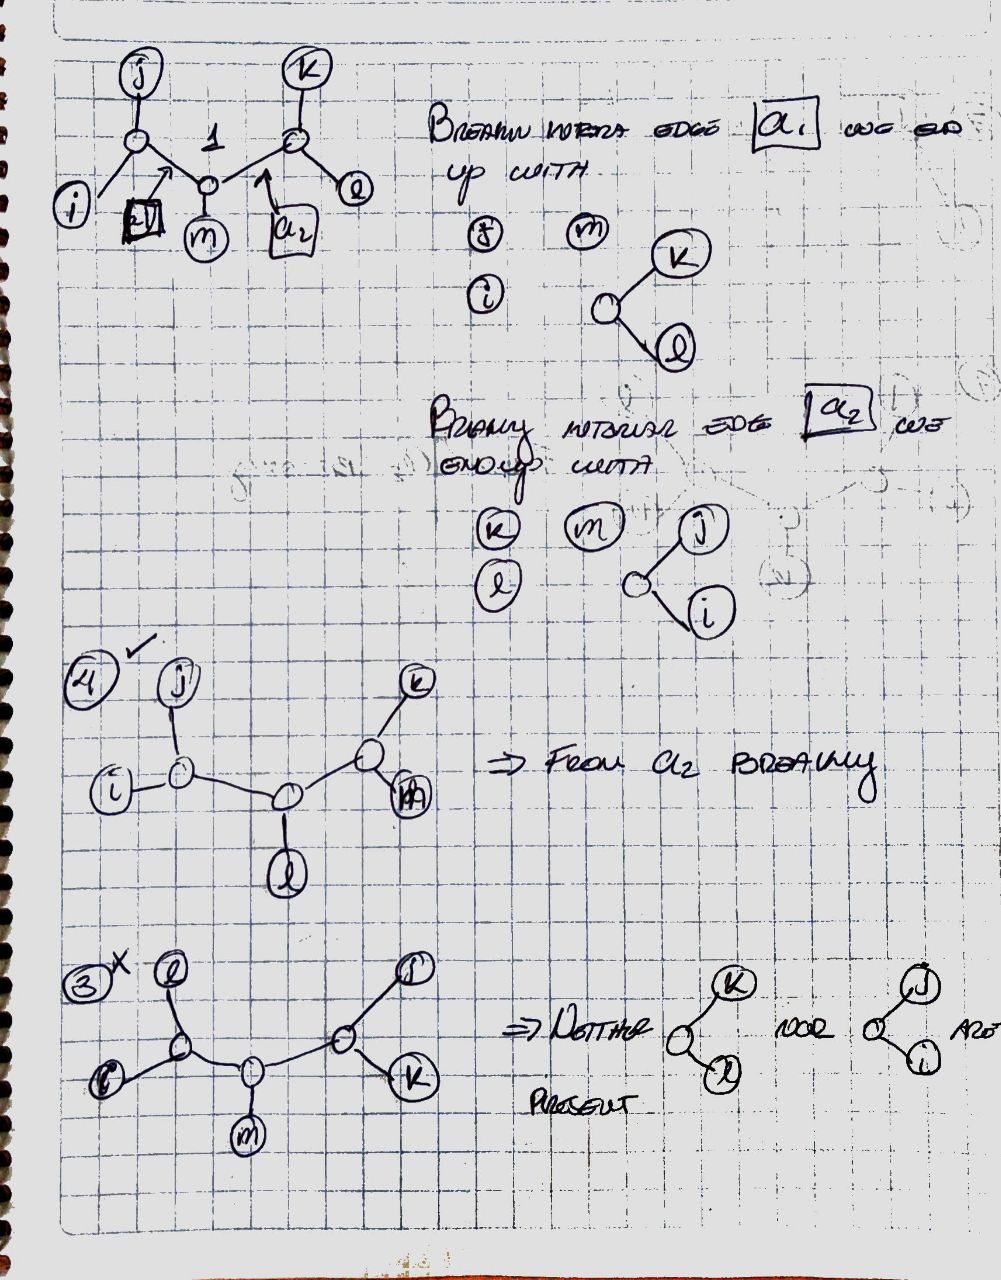 j k
1
i a1 m a2 l
BREAKING INTERNAL EDGE a1 WE END
UP WITH
j m k
i
l
BREAKING INTERNAL EDGE a2 WE
END UP WITH
k m j
l i
4 ✓ j k
i m ⇒ FROM a2 BREAKING
l
3 x l j k j
⇒ NEITHER NOR ARE
i k l i
m PRESENT